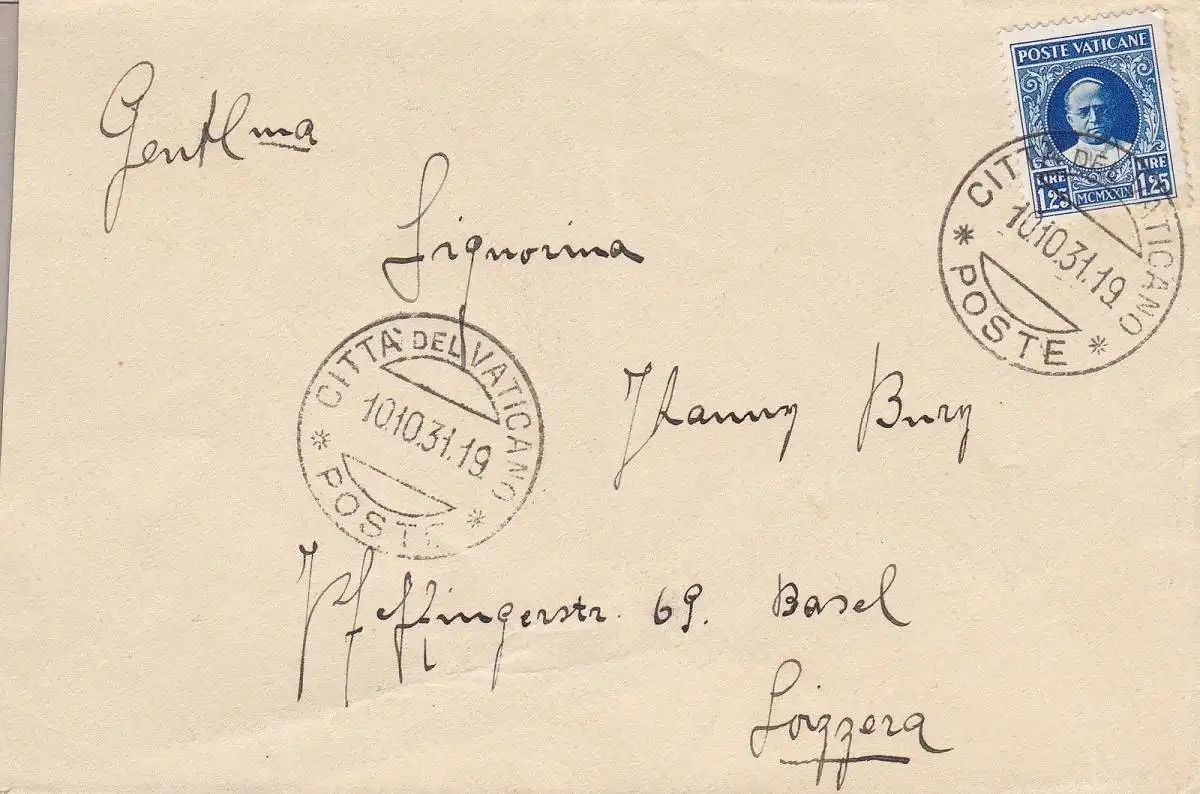 POSTE VATICANE
LIRE 1,25
MCMXXIX
LIRE 1,25
CITTÀ DEL VATICANO
10.10.31.19
POSTE
Gentil ma
Signorina
CITTÀ DEL VATICANO
10.10.31.19
POSTE
Bury
Pfeffingerstr. 69. Basel
Svizzera